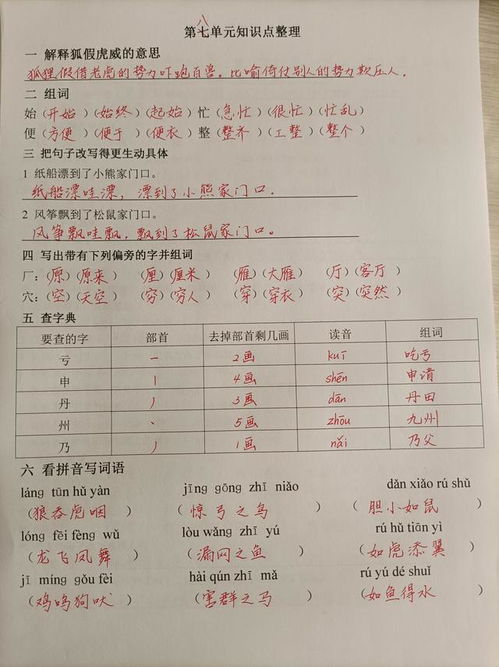 八
第七单元知识点整理
一 解释狐假虎威的意思
狐狸假借老虎的势力吓跑百兽。比喻倚仗别人的势力欺压人.
二 组词
始(开始)(始终)(起始)忙(急忙)(很忙)(忙乱)
便(方便)(便于)(便衣)整(整齐)(工整)(整个)
三 把句子改写得更生动具体
1 纸船漂到了小熊家门口。
纸船漂哇漂，漂到了小熊家门口。
2 风筝飘到了松鼠家门口。
风筝飘哇飘，飘到了松鼠家门口。
四 写出带有下列偏旁的字并组词
厂:(原)(原来) (厘)(厘米) (雁)(大雁) (厅)(客厅)
穴:(空)(天空) (穷)(穷人) (穿)(穿衣) (突)(突然)
五 查字典
要查的字 部首 去掉部首剩几画 读音 组词
亏 一 2画 kuī 吃亏
申 丨 4画 shēn 申请
丹 丿 3画 dān 丹田
州 丶 5画 zhōu 九州
乃 丿 1画 nǎi 乃父
六 看拼音写词语
láng tūn hǔ yàn jīng gōng zhī niǎo dǎn xiǎo rú shǔ
(狼吞虎咽) (惊弓之鸟) (胆小如鼠)
lóng fēi fèng wǔ lòu wǎng zhī yú rú hǔ tiān yì
(龙飞凤舞) (漏网之鱼) (如虎添翼)
jī míng gǒu fèi hài qún zhī mǎ rú yú dé shuǐ
(鸡鸣狗吠) (害群之马) (如鱼得水)